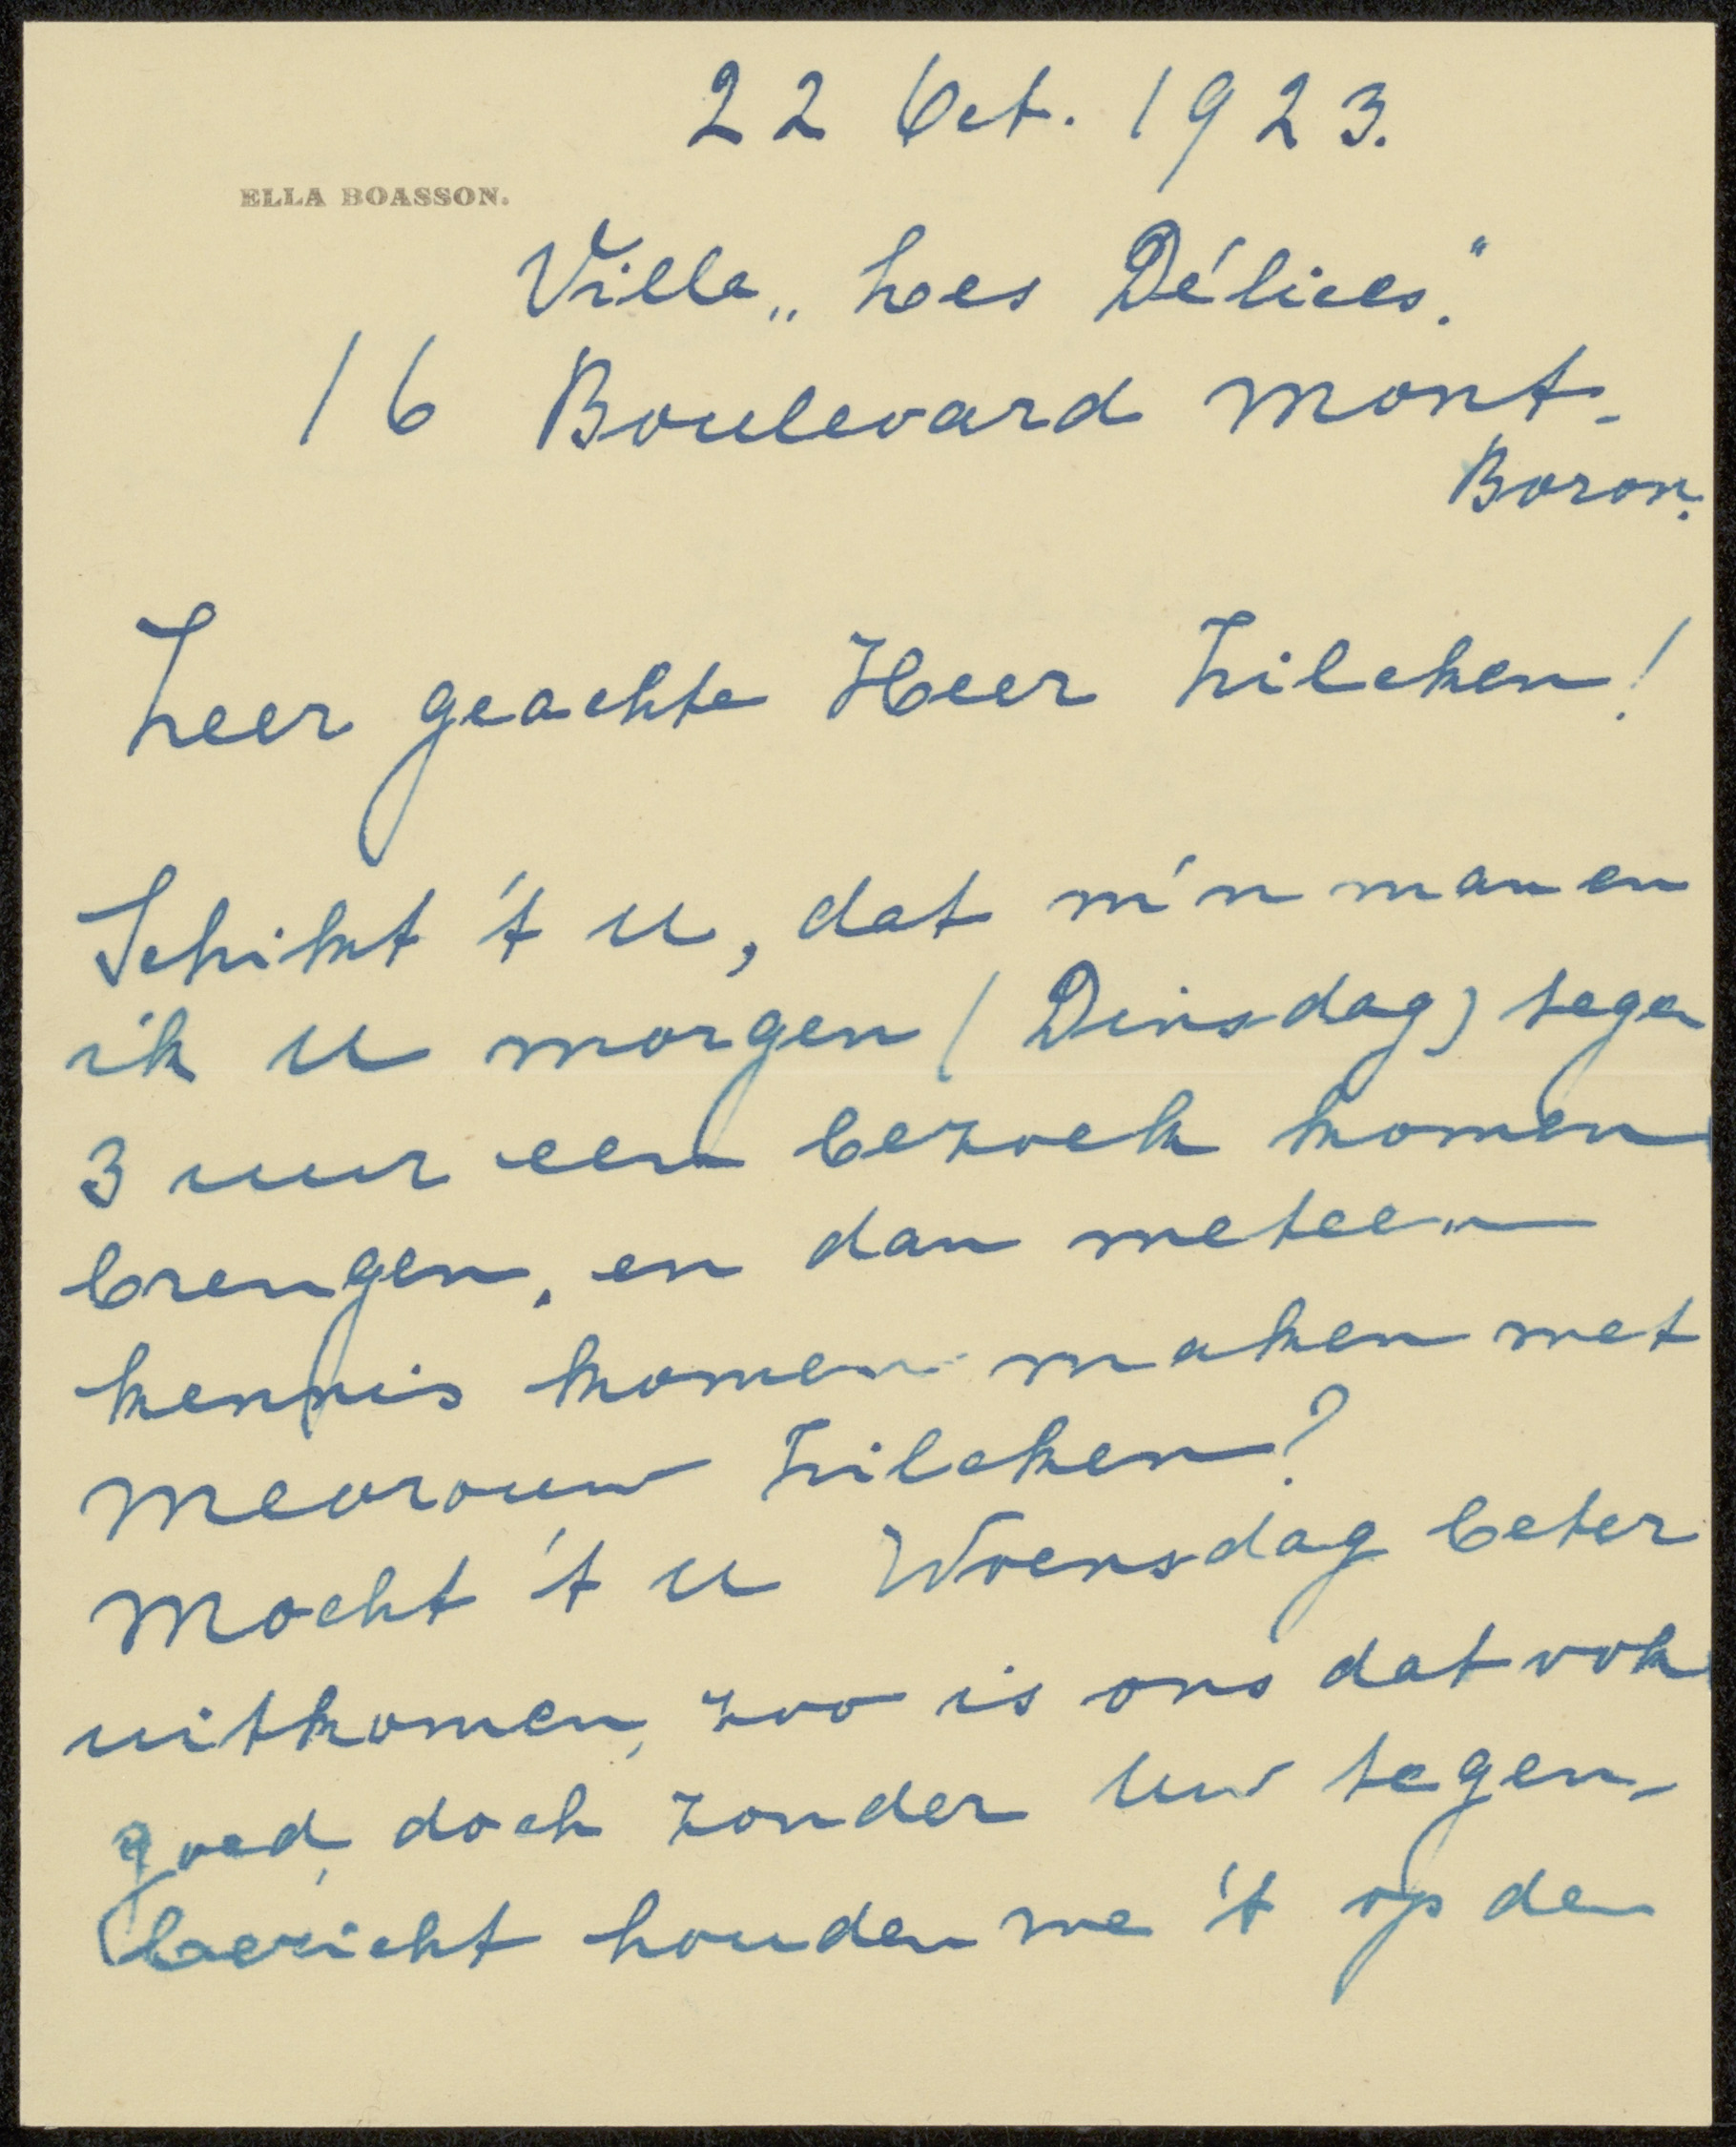 22 Oct. 1923.
ELLA BOASSON.
Villa „Les Délices."
16 Boulevard Mont-
Boron.
Zeer geachte Heer Zilcken!
Schikt 't U, dat m'n man en
ik U morgen (Dinsdag) tegen
3 uur een bezoek komen
brengen, en dan meteen
kennis komen maken met
Mevrouw Zilcken?
Mocht 't U Woensdag beter
uitkomen, zoo is ons dat ook
goed, doch zonder Uw tegen-
bericht houden we 't op den